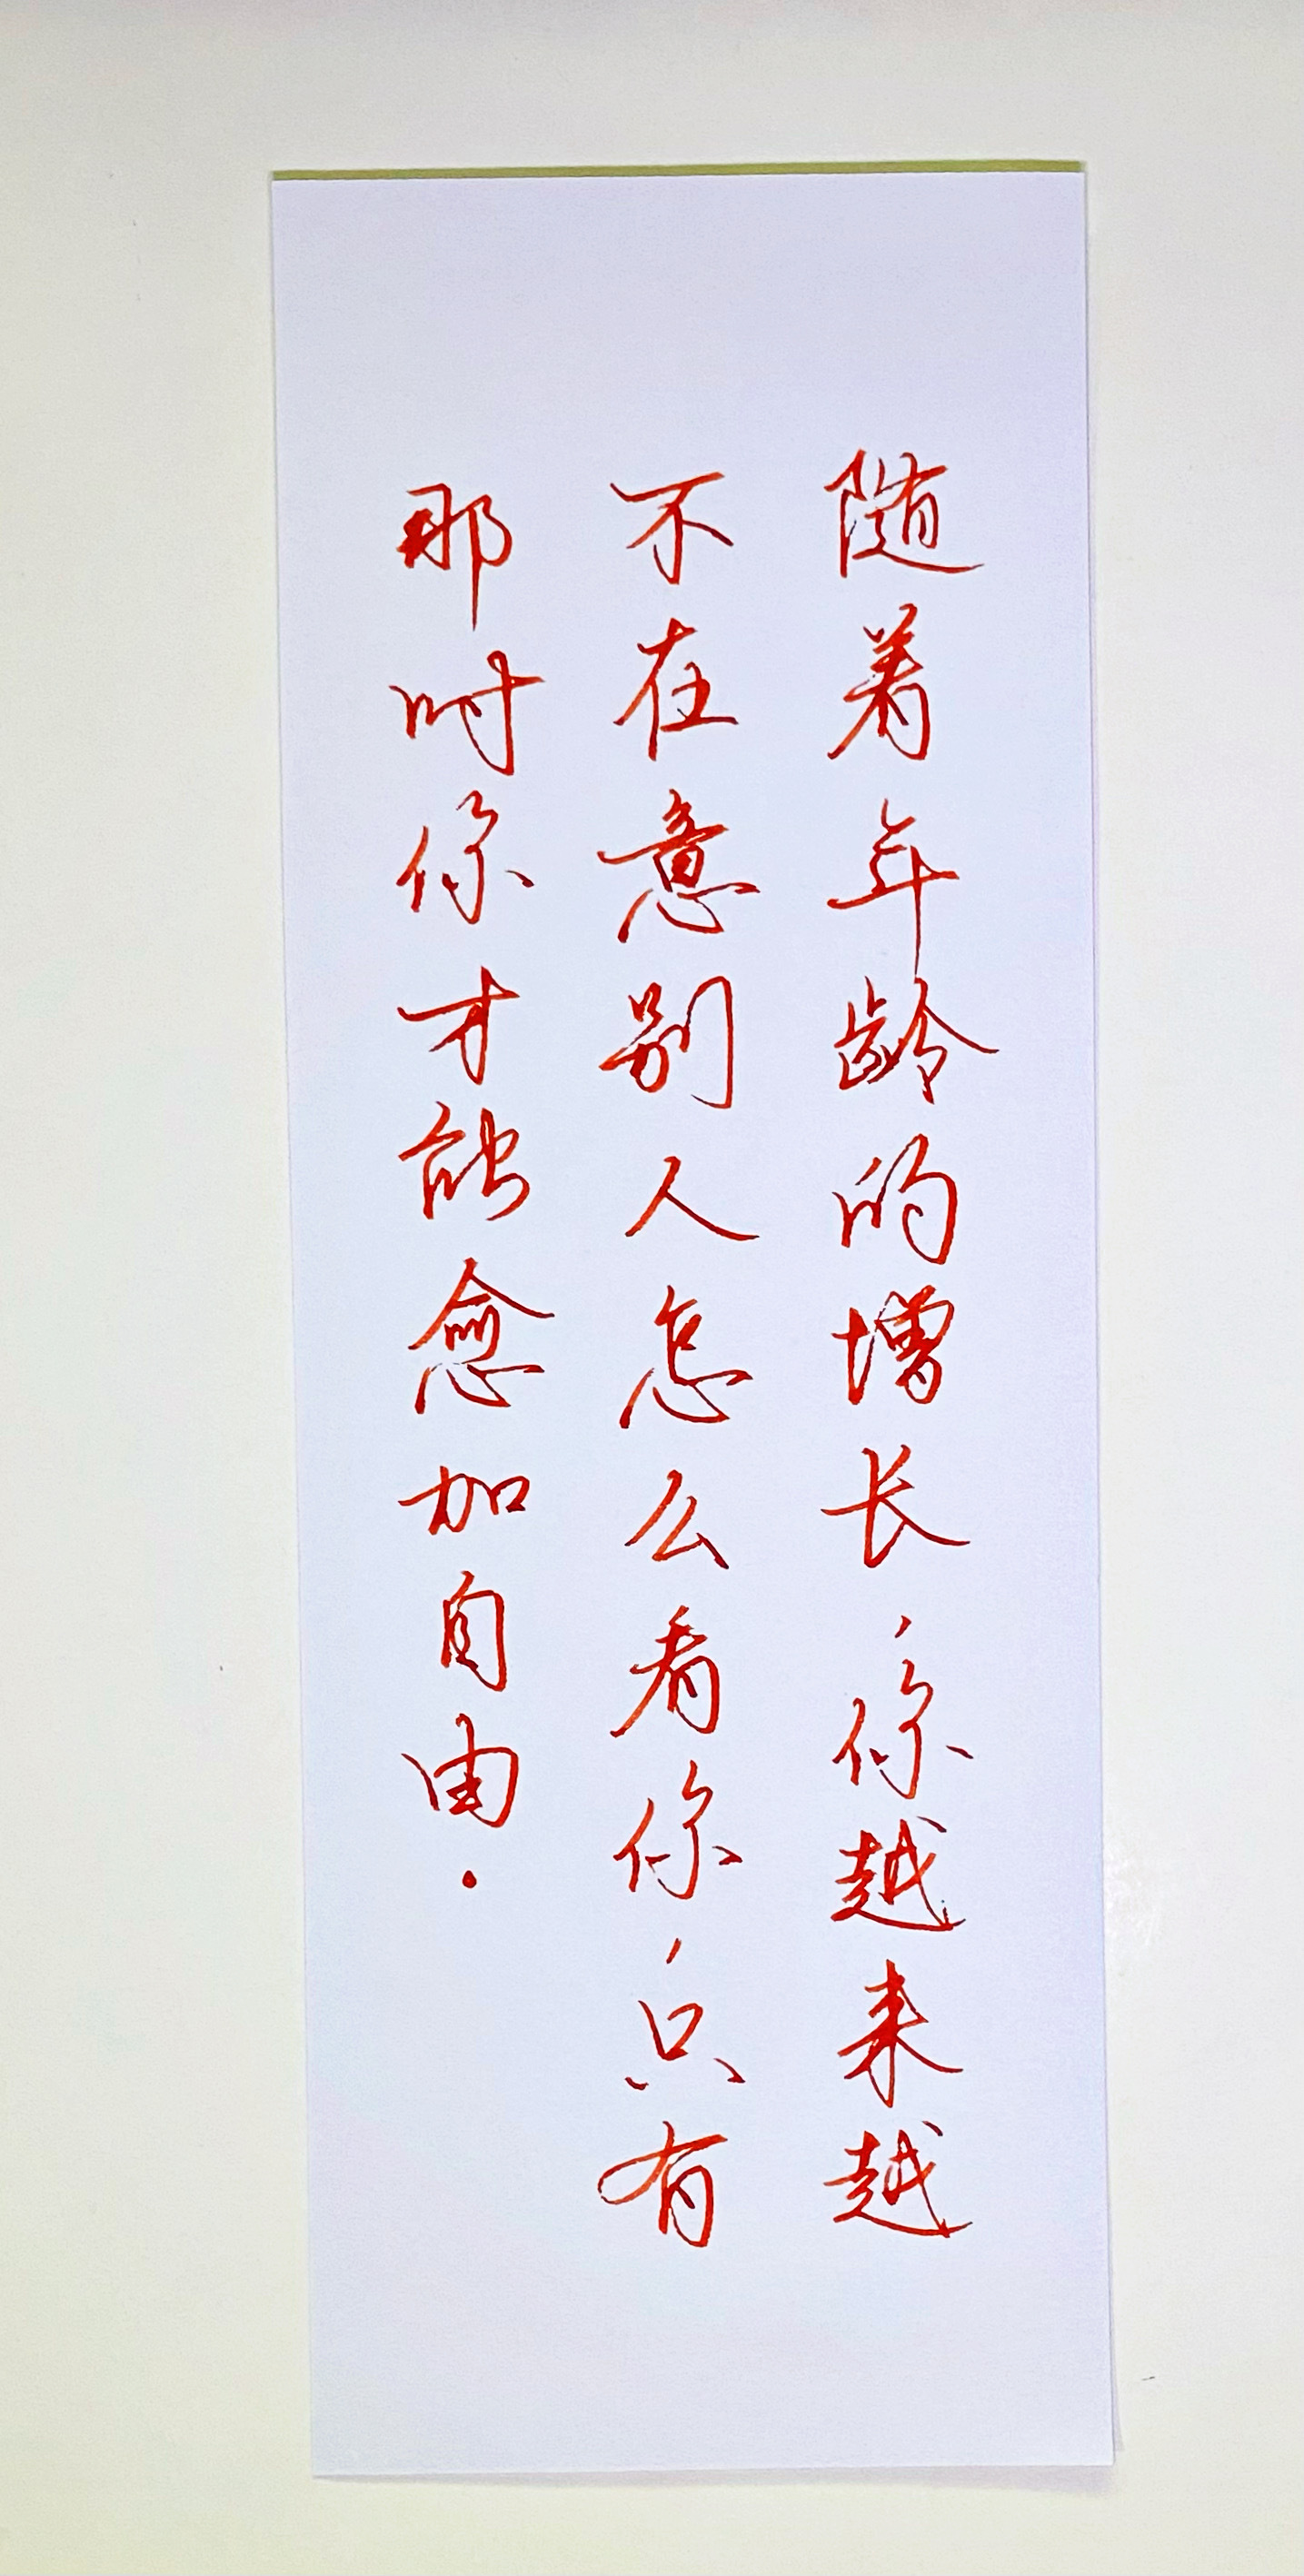 随着年龄的增长，你越来越
不在意别人怎么看你，只有
那时你才能愈加自由.